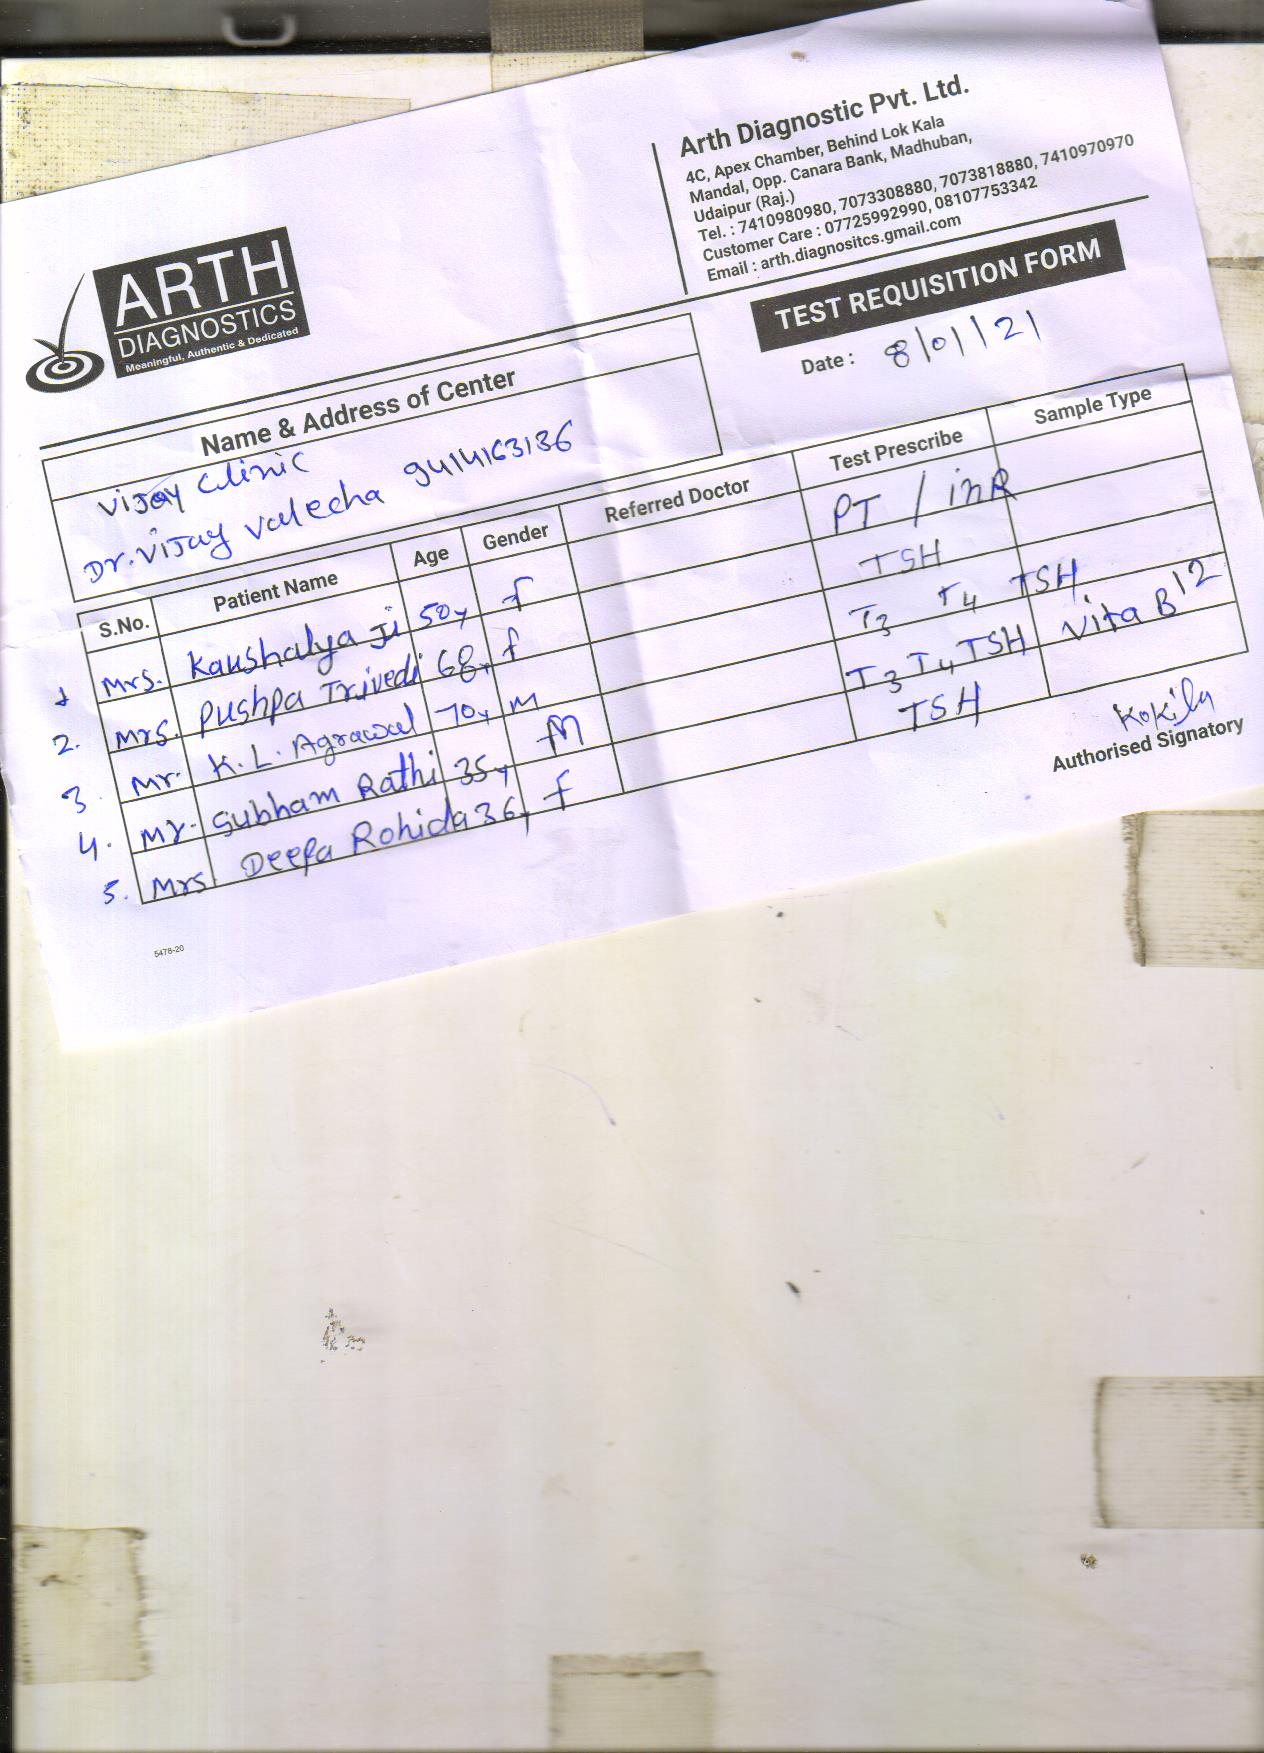 ARTH
DIAGNOSTICS
Meaningful, Authentic & Dedicated
Arth Diagnostic Pvt. Ltd.
4C, Apex Chamber, Behind Lok Kala
Mandal, Opp. Canara Bank, Madhuban,
Udaipur (Raj.)
Tel. : 7410980980, 7073308880, 7073818880, 7410970970
Customer Care : 07725992990, 08107753342
Email : arth.diagnositcs.gmail.com
TEST REQUISITION FORM
Date : 8/01/21
Name & Address of Center
Vijay Clinic
Dr. Vijay Valecha 9414163136
S.No. Patient Name Age Gender Referred Doctor Test Prescribe Sample Type
1 Mrs. Kaushalya Ji 50y f PT / inR
2. Mrs. Pushpa Trivedi 68y f TSH
3. Mr. K. L. Agrawal 70y M T3 T4 TSH
4. Mr. Subham Rathi 35y M T3 T4 TSH Vita B12
5. Mrs. Deepa Rohida 36y f TSH
Kokila
Authorised Signatory
5478-20